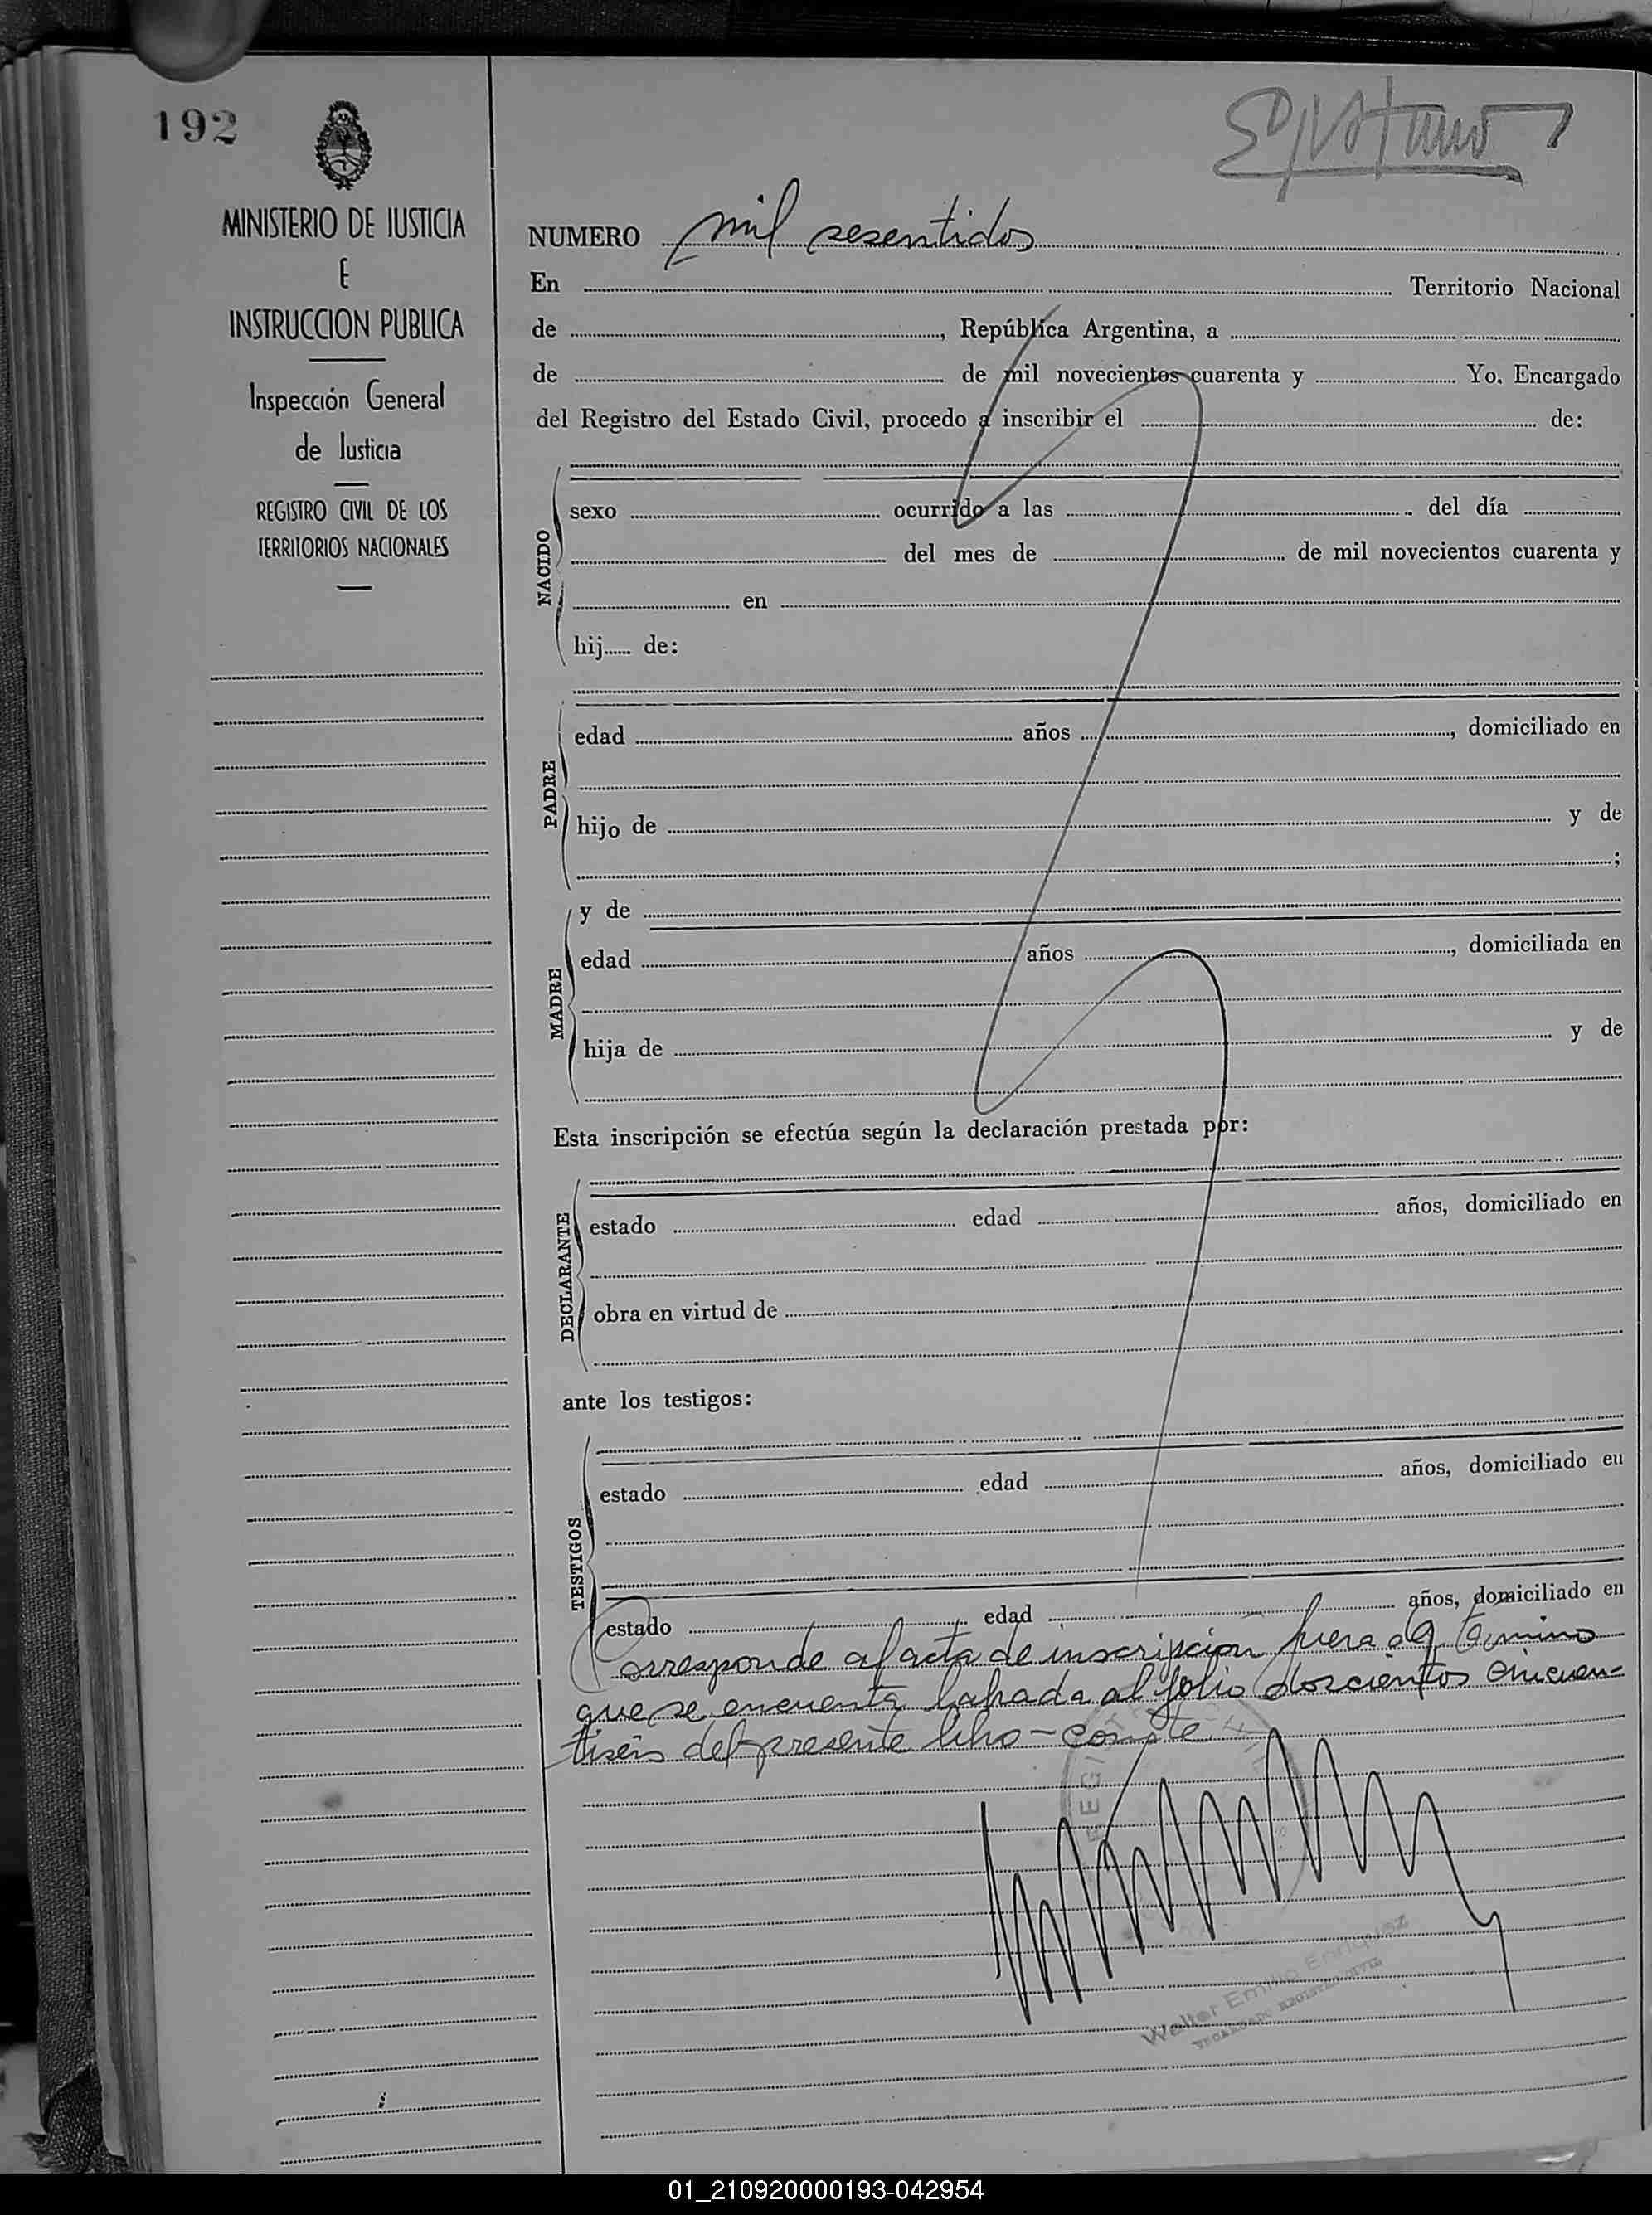 192
MINISTERIO DE JUSTICIA
E
INSTRUCCION PUBLICA
Inspección General
de Justicia
REGISTRO CIVIL DE LOS
TERRITORIOS NACIONALES
NUMERO mil sesentidos
En Territorio Nacional
de , República Argentina, a
de de mil novecientos cuarenta y Yo. Encargado
del Registro del Estado Civil, procedo a inscribir el de:
NACIDO
sexo ocurrido a las del día
del mes de de mil novecientos cuarenta y
en
hij...... de:
PADRE
edad años , domiciliado en
hijo de y de
;
MADRE
y de
edad años , domiciliada en
hija de y de
Esta inscripción se efectúa según la declaración prestada por:
DECLARANTE
estado edad años, domiciliado en
obra en virtud de
ante los testigos:
TESTIGOS
estado edad años, domiciliado en
estado edad años, domiciliado en
Corresponde al acta de inscripción fuera de término
que se encuentra labrada al folio doscientos cincuen-
tiseis del presente libro - conste
REGIST
Walter Emilio Enriquez
ENCARGADO REGISTRO CIVIL
01_210920000193-042954